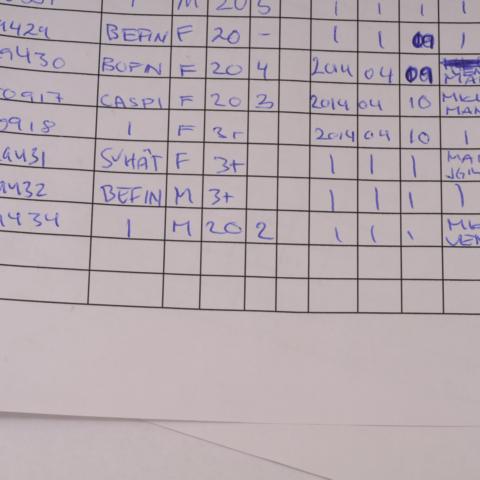 M 20 5 1 1 1 1
9429 BEFIN F 20 - 1 1 09 1
9430 BOPN F 20 4 2014 04 09
0917 CASPI F 20 3 2014 04 10
0918 1 F 3+ 2014 04 10 1
9431 SVHAT F 3+ 1 1 1
9432 BEFIN M 3+ 1 1 1 1
9434 1 M 20 2 1 1 1